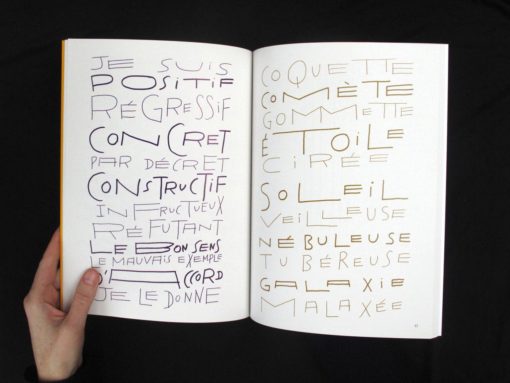 JE SUIS
POSITIF
RÉGRESSIF
CONCRET
PAR DÉCRET
CONSTRUCTIF
INFRUCTUEUX
RÉFUTANT
LE BON SENS
LE MAUVAIS EXEMPLE
D'ACCORD
JE LE DONNE
COQUETTE
COMÈTE
GOMMETTE
ÉTOILE
CIRÉE
SOLLEIL
VEILLEUSE
NÉBULEUSE
TUBÉREUSE
GALAXIE
MALAXÉE